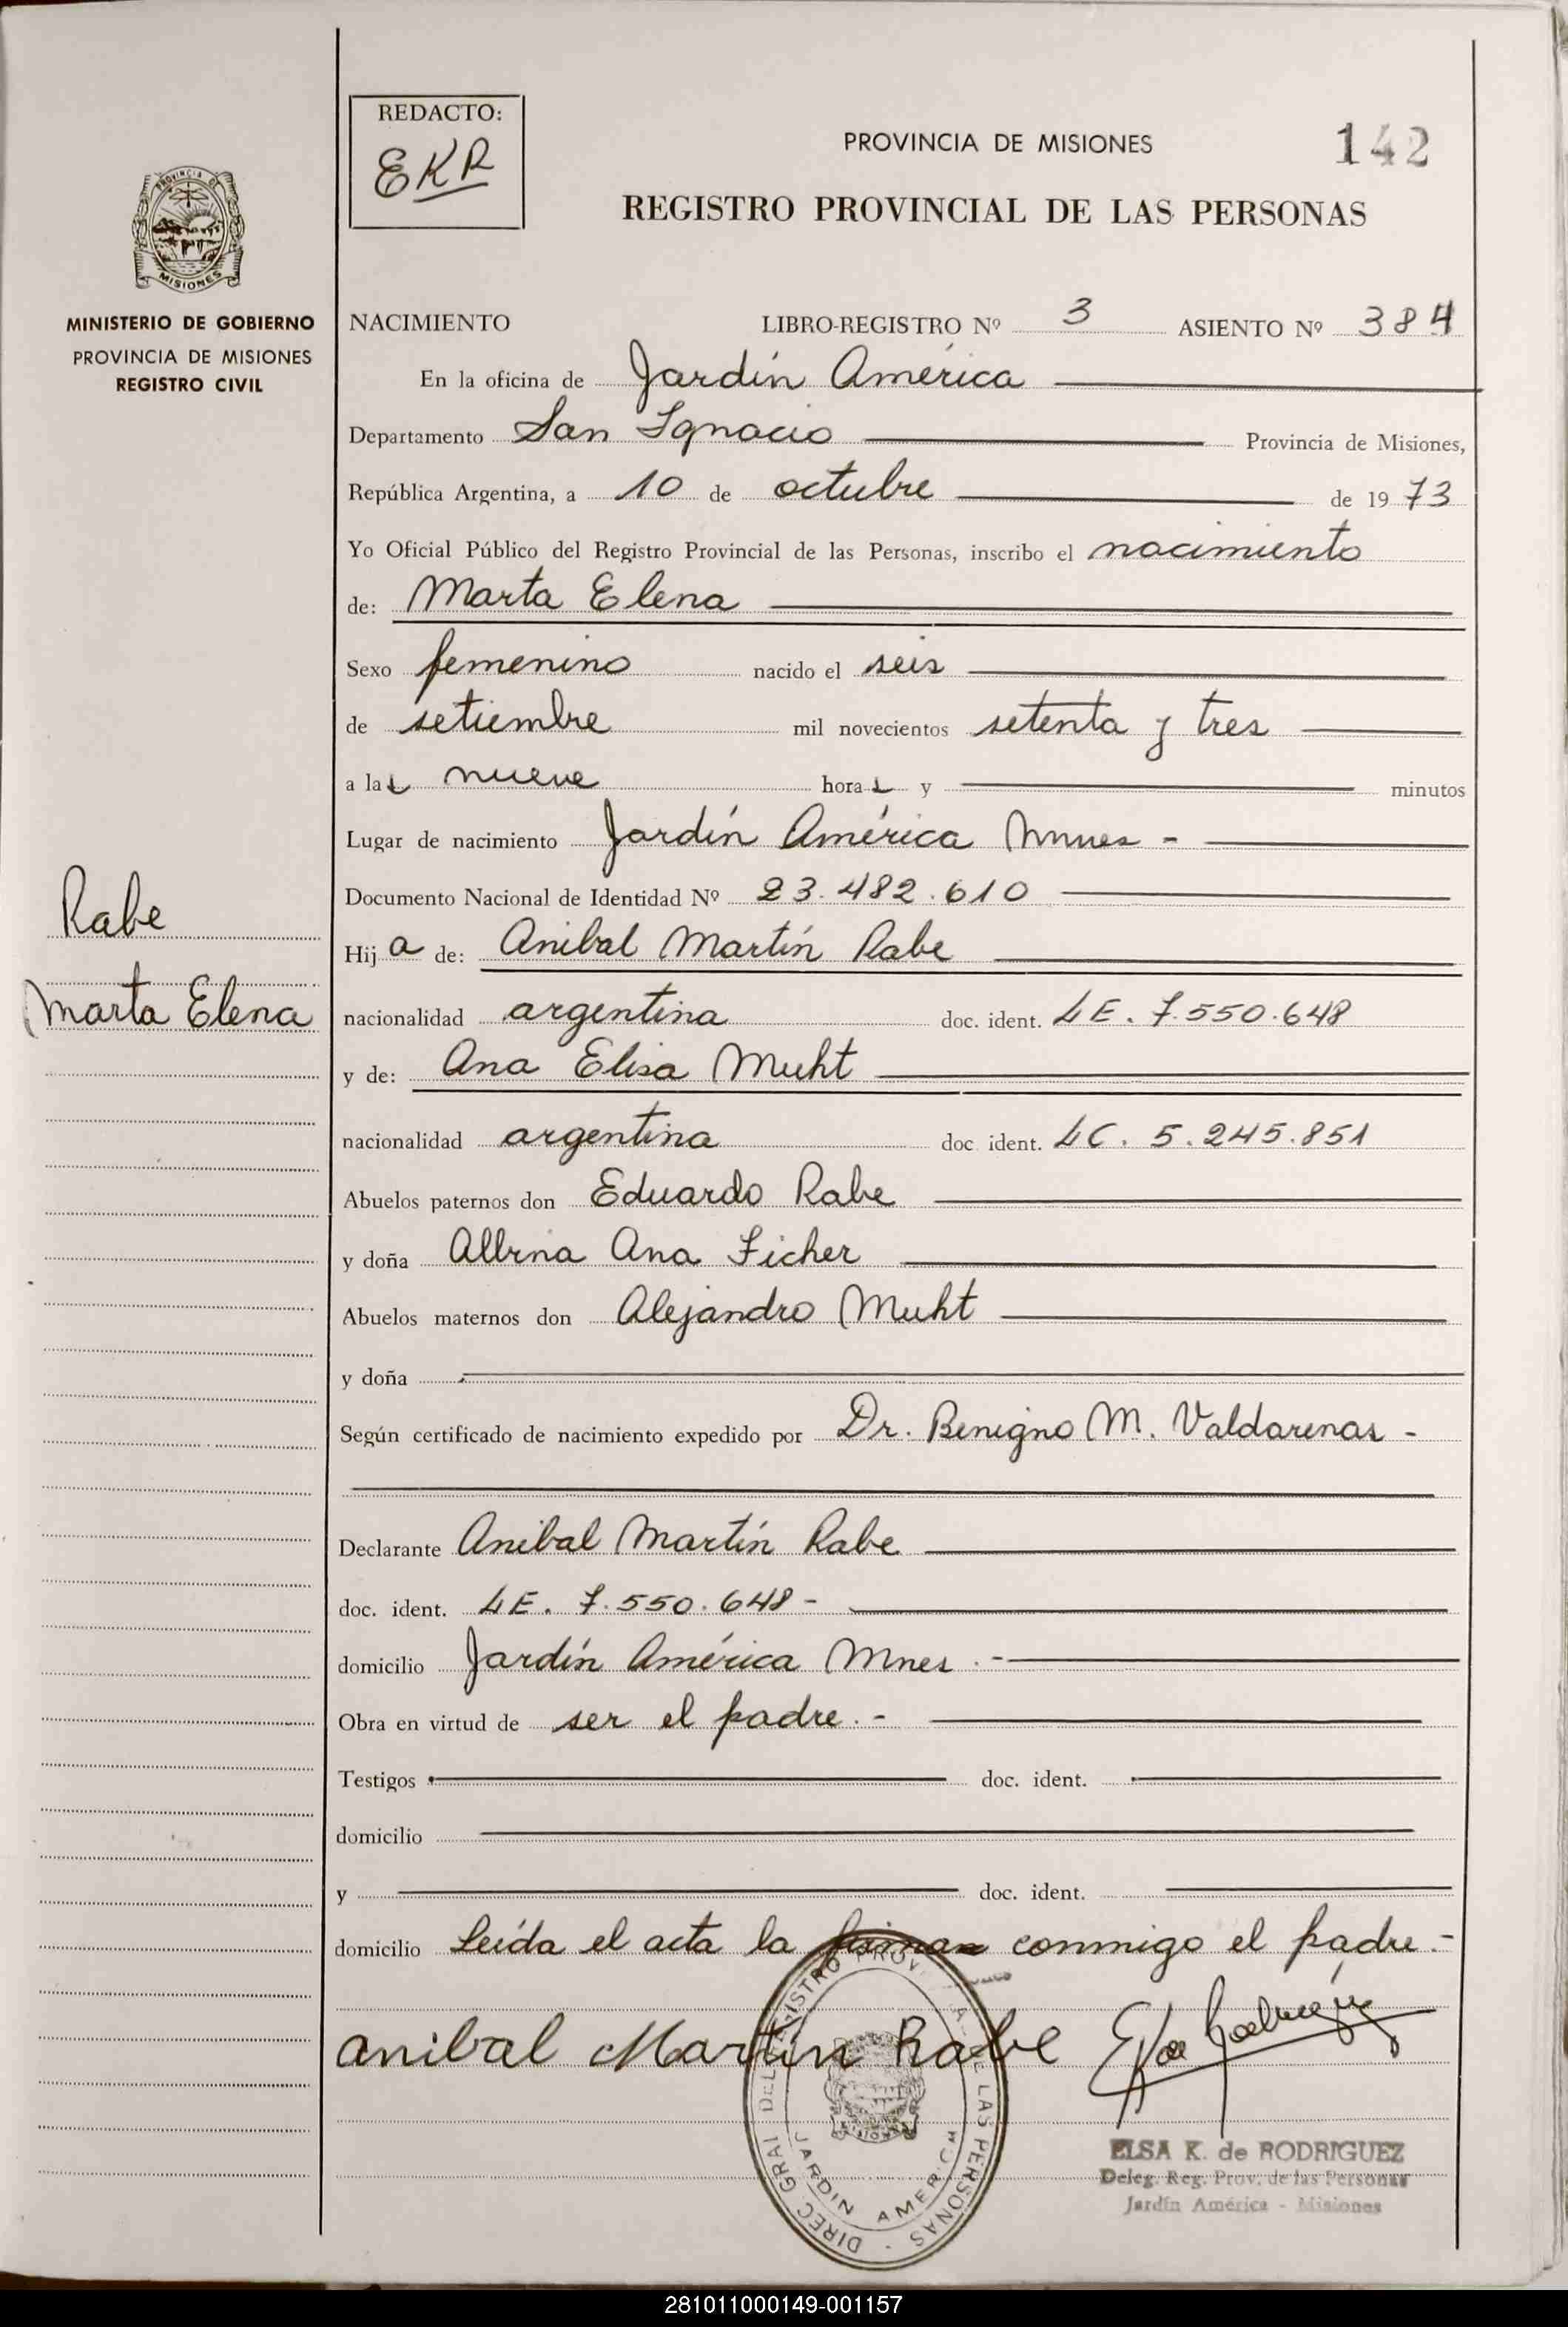 REDACTO:
EKR
PROVINCIA DE MISIONES
142
REGISTRO PROVINCIAL DE LAS PERSONAS
PROVINCIA DE
MISIONES
MINISTERIO DE GOBIERNO
PROVINCIA DE MISIONES
REGISTRO CIVIL
NACIMIENTO LIBRO-REGISTRO Nº 3 ASIENTO Nº 384
En la oficina de Jardín América
Departamento San Ignacio Provincia de Misiones,
República Argentina, a 10 de octubre de 1973
Yo Oficial Público del Registro Provincial de las Personas, inscribo el nacimiento
de: Marta Elena
Sexo femenino nacido el seis
de setiembre mil novecientos setenta y tres
a las nueve horas y minutos
Lugar de nacimiento Jardín América Mnnes -
Documento Nacional de Identidad Nº 23.482.610
Rabe
Hija de: Anibal Martín Rabe
Marta Elena
nacionalidad argentina doc. ident. LE. 7.550.648
y de: Ana Elisa Muht
nacionalidad argentina doc ident. LC. 5.245.851
Abuelos paternos don Eduardo Rabe
y doña Albina Ana Ficher
Abuelos maternos don Alejandro Muht
y doña
Según certificado de nacimiento expedido por Dr. Benigno M. Valdarenas -
Declarante Anibal Martín Rabe
doc. ident. LE. 7.550.648 -
domicilio Jardín América Mnes. -
Obra en virtud de ser el padre. -
Testigos doc. ident.
domicilio
y doc. ident.
domicilio Leída el acta la firman conmigo el padre. -
anibal Martin Rabe
DIREC. GRAL DEL REGISTRO PROVINCIAL DE LAS PERSONAS -
JARDIN AMERICA
ELSA K. de RODRIGUEZ
Deleg. Reg. Prov. de las Personas
Jardín América - Misiones
281011000149-001157